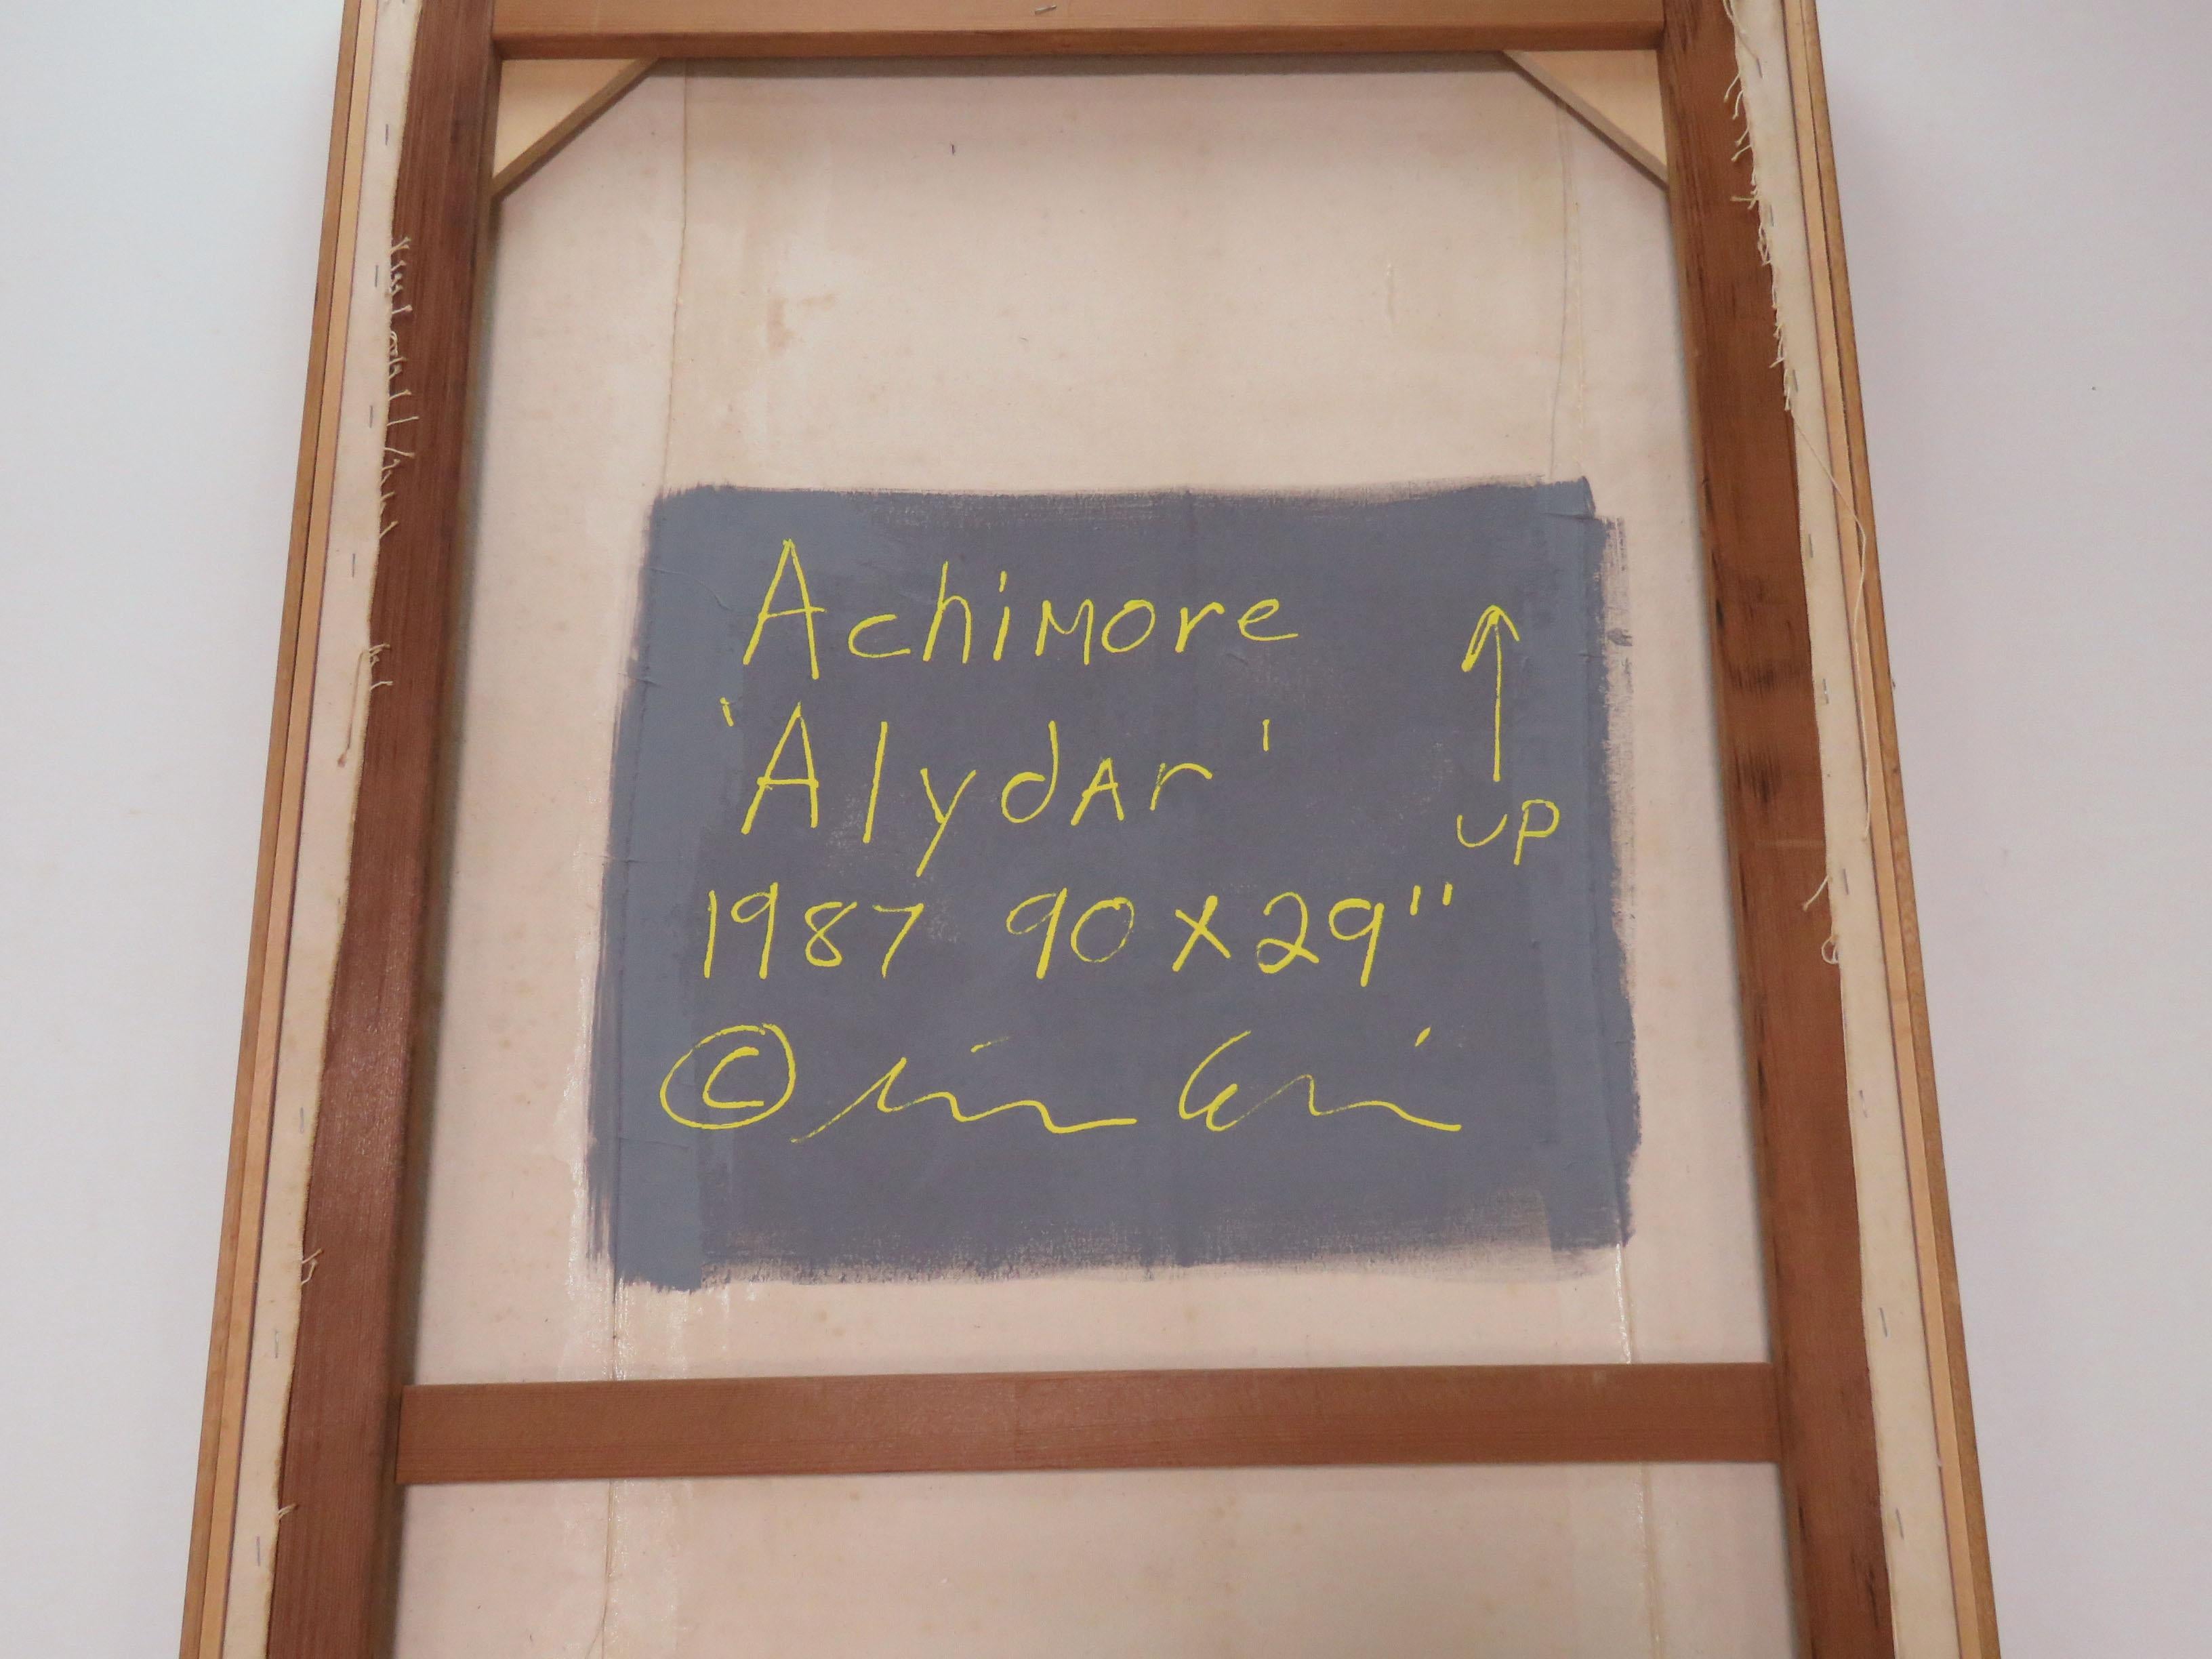 Achimore
'Alydar'
UP
1987 90 x 29"
©